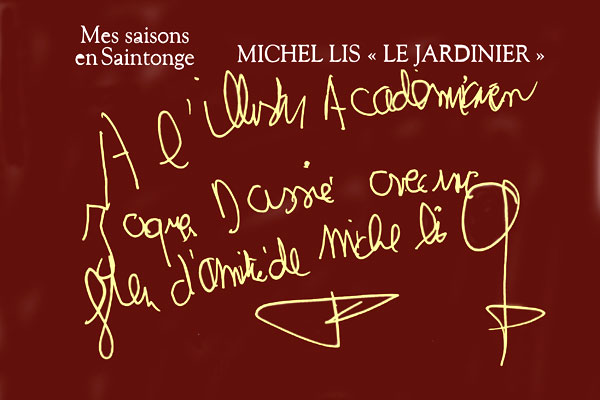 Mes saisons
en Saintonge
MICHEL LIS « LE JARDINIER »
A l'illustre Académicien
Jacques Dassié avec un
d'amitié de Michel lis